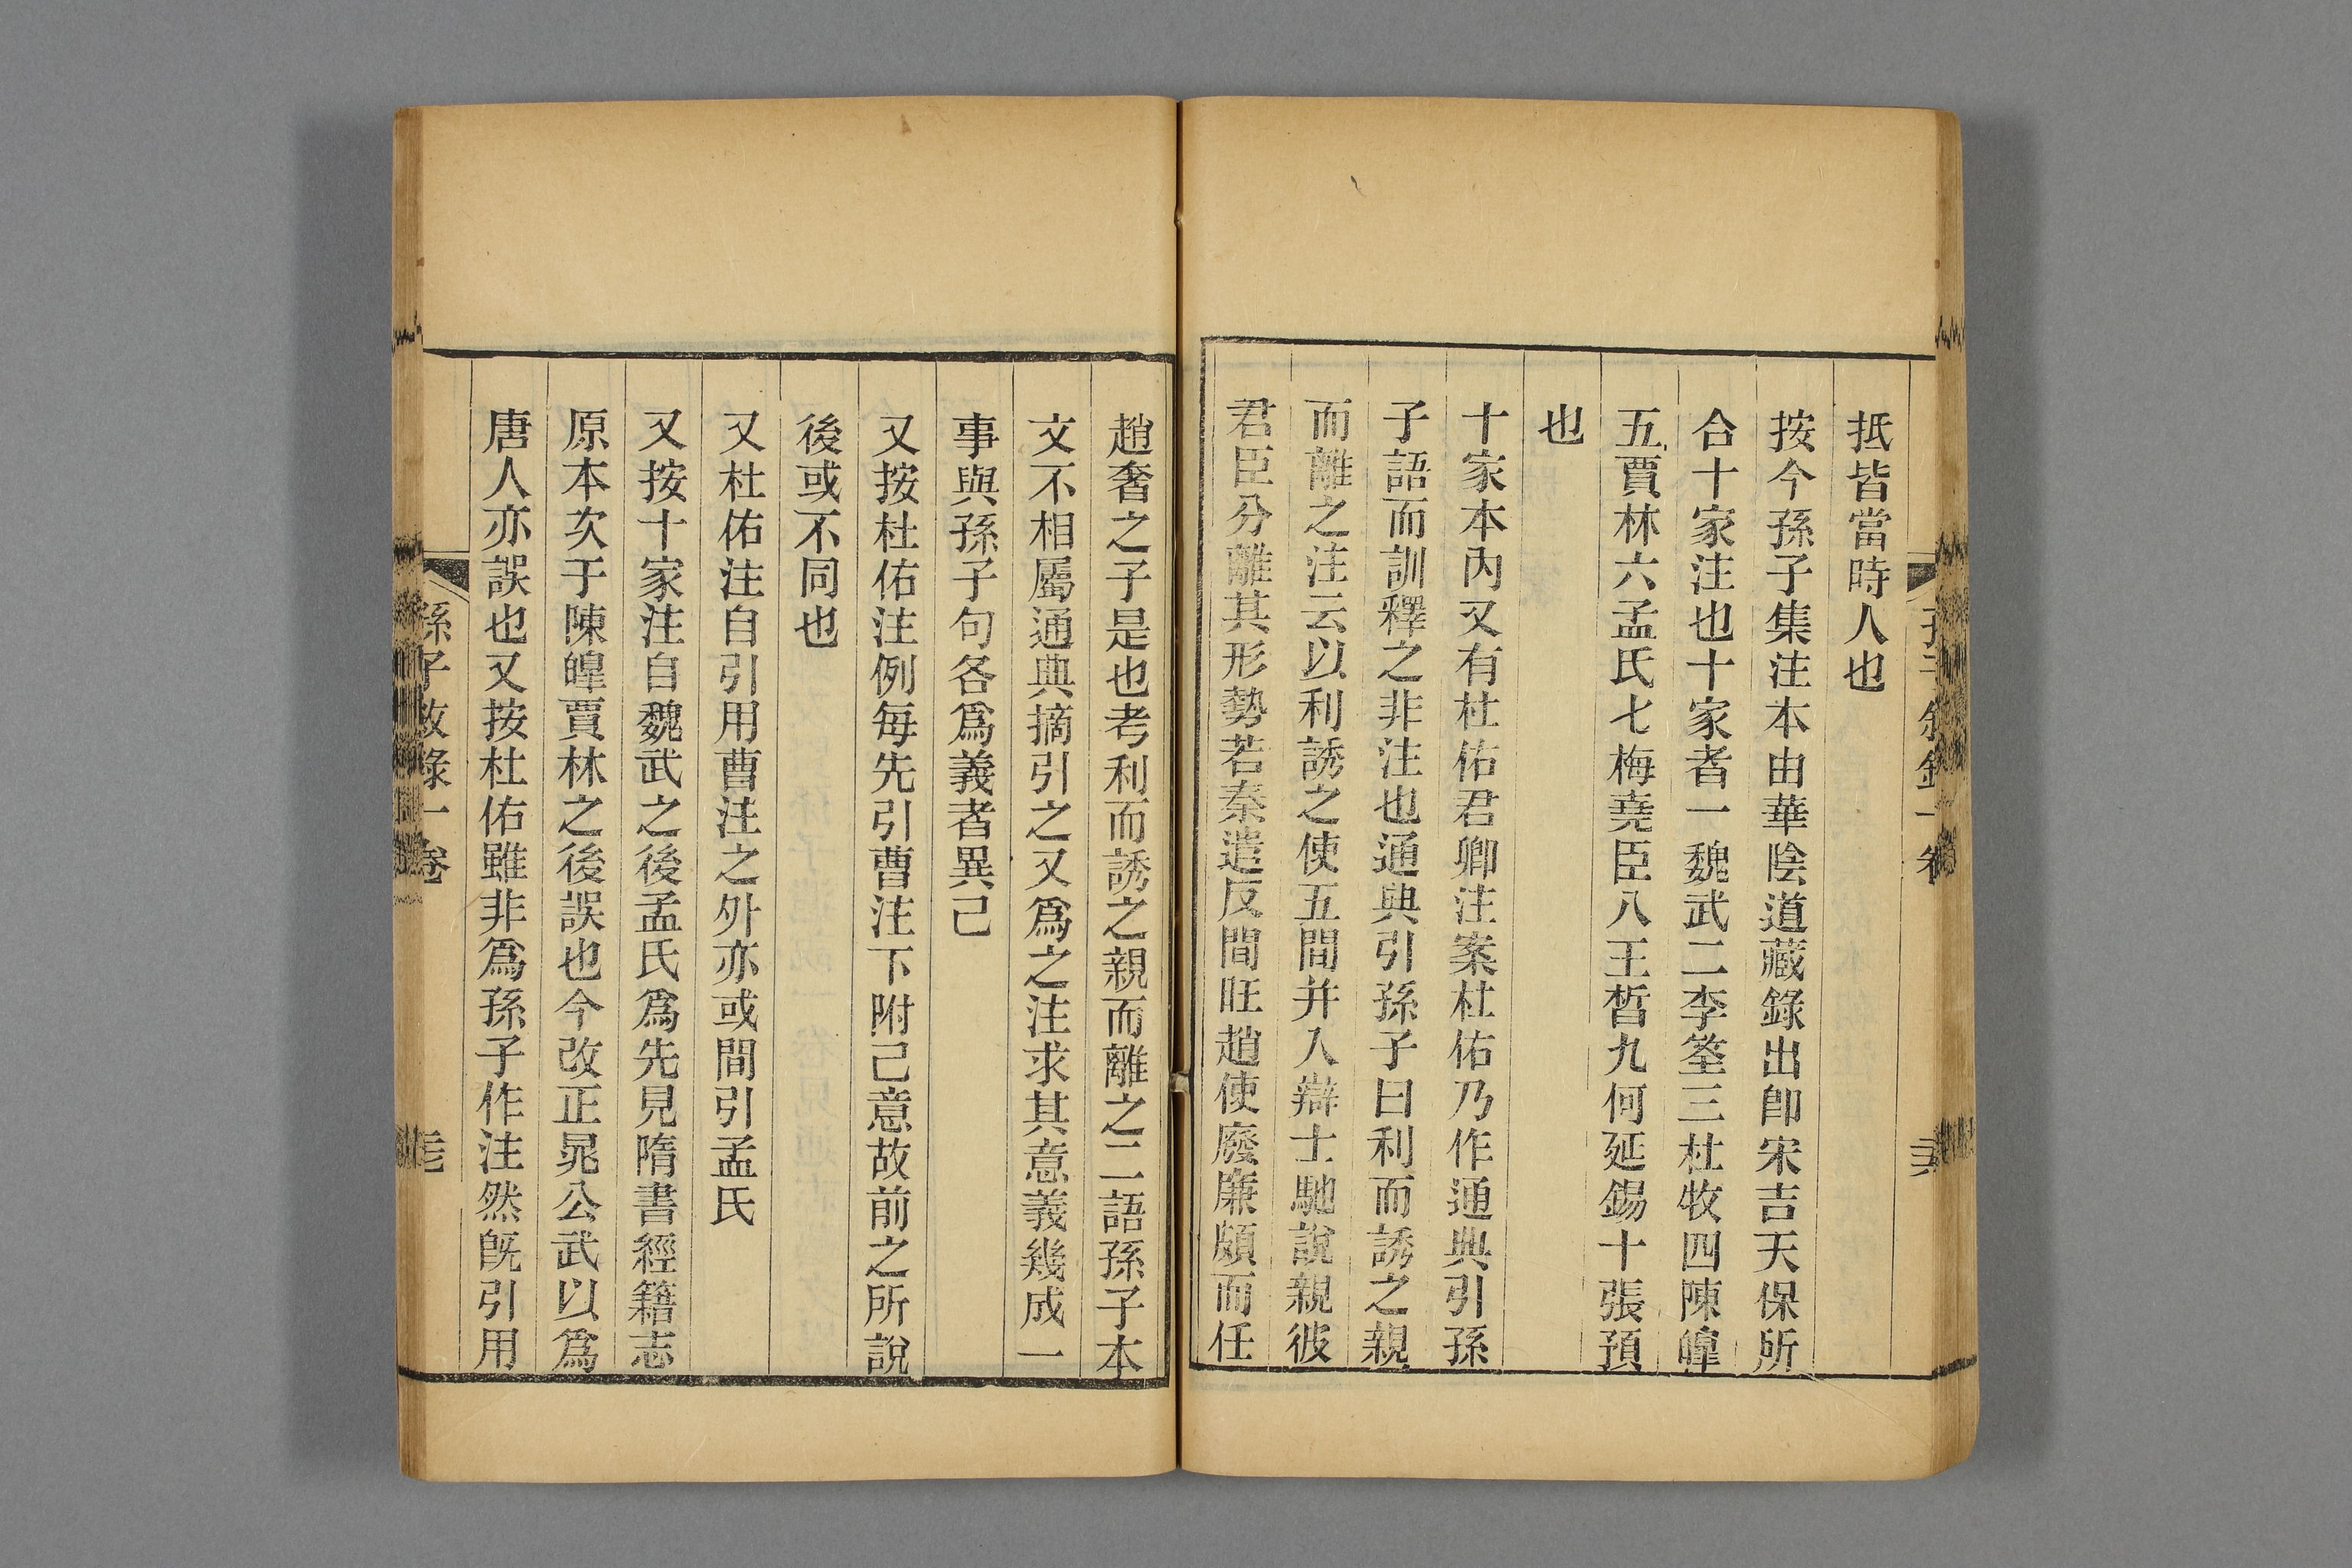 抵皆當時人也
按今孫子集注本由華陰道藏錄出卽宋吉天保所
合十家注也十家者一魏武二李筌三杜牧四陳皥
五賈林六孟氏七梅堯臣八王晳九何延錫十張預
也
十家本內又有杜佑君卿注案杜佑乃作通典引孫
子語而訓釋之非注也通典引孫子曰利而誘之親
而離之注云以利誘之使五間并入辯士馳說親彼
君臣分離其形勢若秦遣反間誑趙使廢廉頗而任
趙奢之子是也考利而誘之親而離之二語孫子本
文不相屬通典摘引之又爲之注求其意義幾成一
事與孫子句各爲義者異己
又按杜佑注例每先引曹注下附己意故前之所說
後或不同也
又杜佑注自引用曹注之外亦或間引孟氏
又按十家注自魏武之後孟氏爲先見隋書經籍志
原本次于陳皥賈林之後誤也今改正晁公武以爲
唐人亦誤也又按杜佑雖非爲孫子作注然旣引用
孫子敘錄一卷